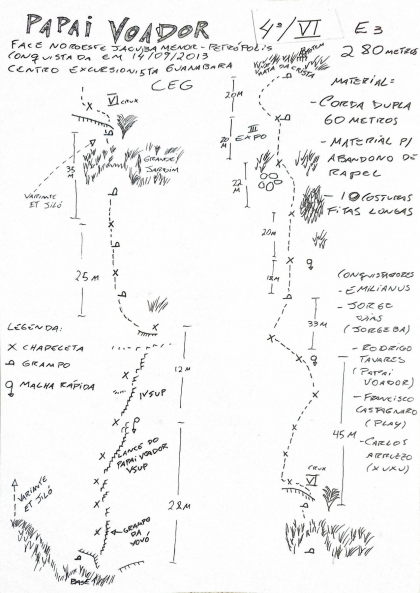 PAPAI VOADOR 4º/VI E3
FACE NOROESTE JACUBA MENOR - PETRÓPOLIS 280 METROS
CONQUISTADA EM 14/09/2013
CENTRO EXCURSIONISTA GUANABARA
CEG
VI CRUX
GRANDE JARDIM
35 M
VARIANTE ET JILÓ
25 M
LEGENDA:
X CHAPELETA
GRAMPO
MALHA RÁPIDA
12 M
IVSUP
LANCE DO
PAPAI VOADOR
VSUP
28 M
GRAMPO
DA
VOVÓ
VARIANTE
ET JILÓ
BASE
MATA DA CRISTA
20 M
III
EXPO
20 M
22 M
20 M
18 M
33 M
45 M
CRUX
VI
MATERIAL:
- CORDA DUPLA
60 METROS
- MATERIAL P/
ABANDONO DE
RAPEL
- 10 COSTURAS
FITAS LONGAS
CONQUISTADORES
- EMILIANUS
- JORGE
DIAS
(JORGEBA)
- RODRIGO
TAVARES
(PAPAI
VOADOR)
- FRANCISCO
CASTAGNARO
(PLAY)
- CARLOS
(XUXU)